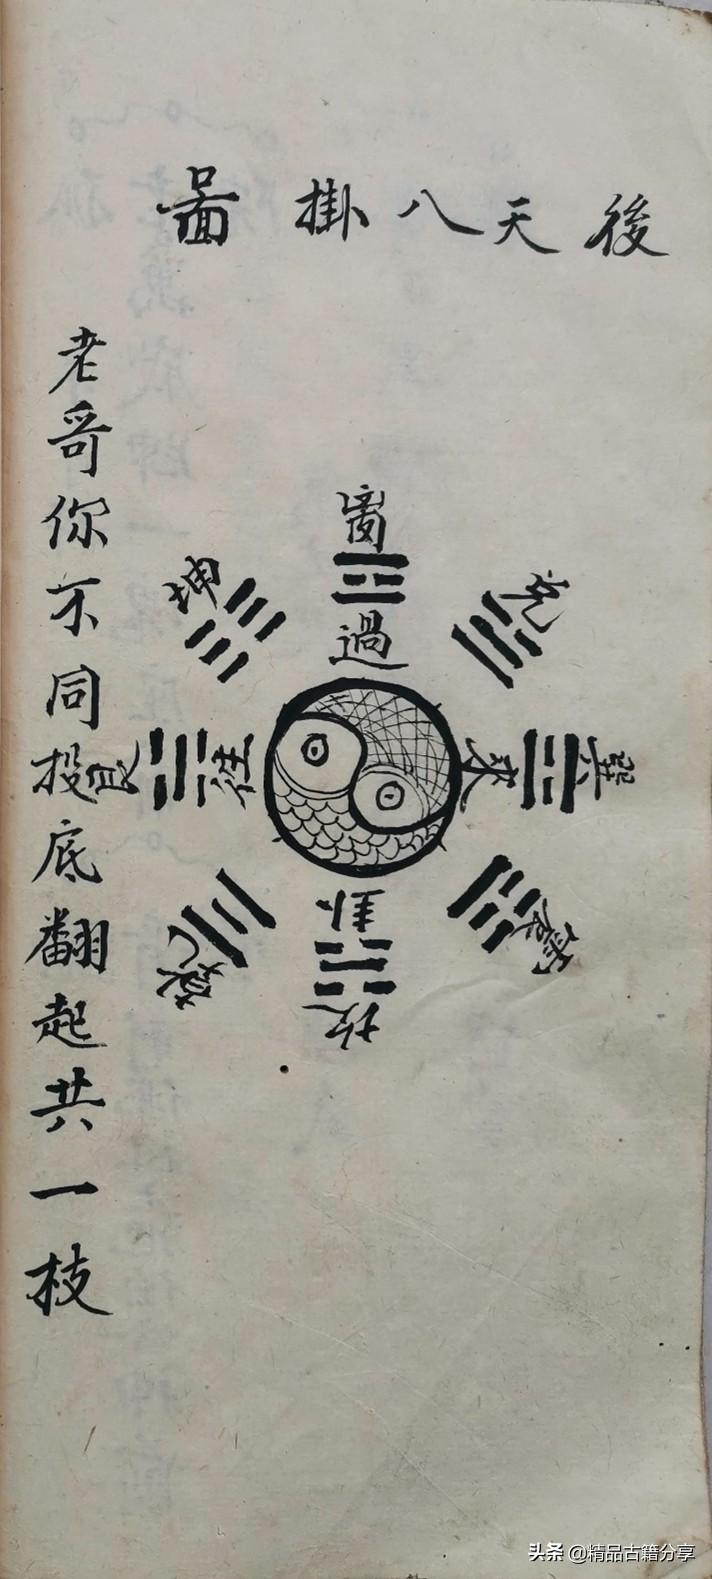 後天八掛圖
离
過
坤
兌
艮
往
来
巽
卦
坎
乾
震
老哥你不同投底翻起共一枝
头条 @精品古籍分享